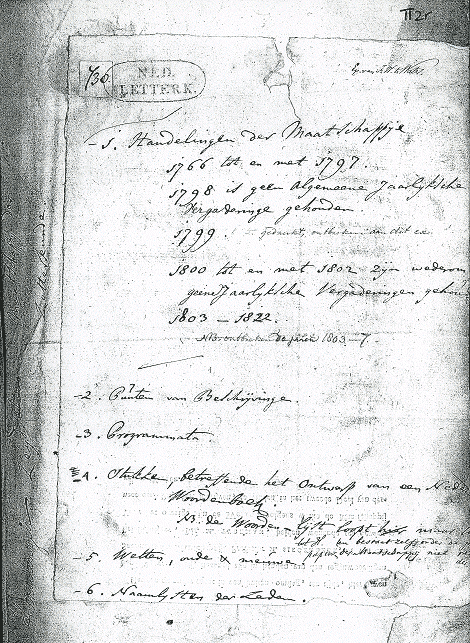 736
NED.
LETTERK.
- 1. Handelingen der Maatschappije
1766 tot en met 1797.
1798 is geen Algemeene Jaarlyksche
Vergaderinge gehouden.
1799. gedrukt, ontbreken aan dit ex.
1800 tot en met 1802 zyn wederom
geene Jaarlyksche Vergaderingen gehou
1803 - 1822.
NB ontbreken de jaren 1803-7.
- 2. Punten van Beschryvinge.
- 3. Programmata.
- 4. Stukken, betreffende het Ontwerp van een Ned
Woordenboek.
NB. de Woorden-lijst loopt
- 5. Wetten, oude & nieuwe
- 6. Naamlysten der Leden.